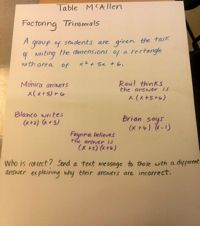 Table McAllen
Factoring Trinomials
A group of students are given the task
of writing the dimensions of a rectangle
with area of x² + 5x + 6.
Mónica answers
x(x+5)+6
Raul thinks
the answer is
x(x+5+6)
Blanca writes
(x+2)(x+3)
Brian says
(x+6)(x-1)
Fayrina believes
the answer is
(x+5)(x+6)
Who is correct? Send a text message to those with a different
answer explaining why their answers are incorrect.